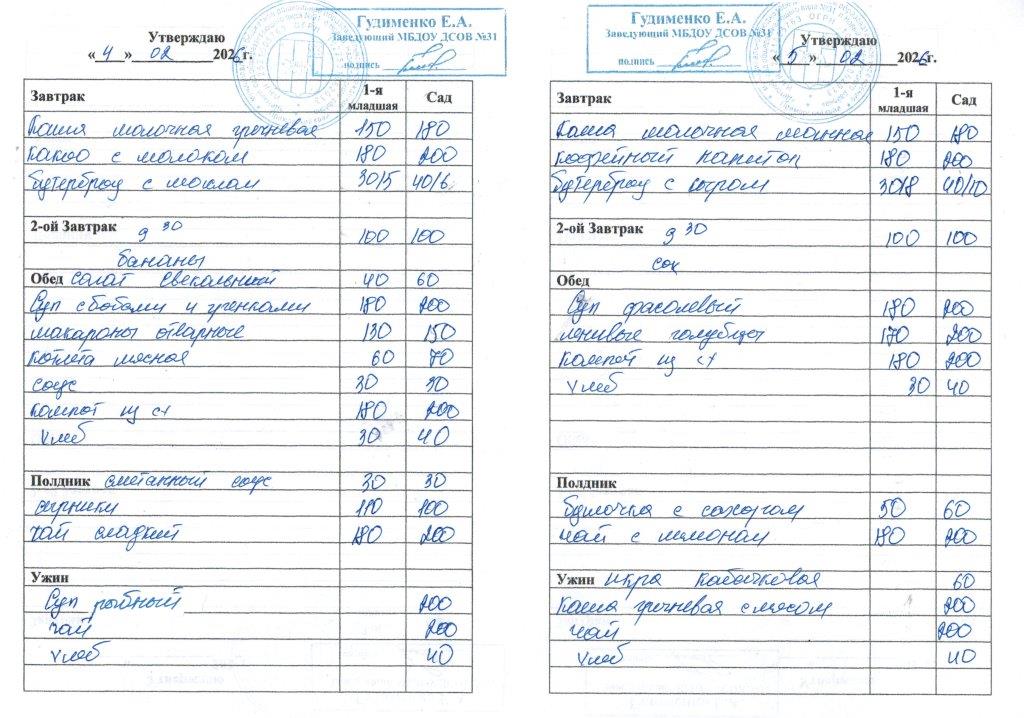 Утверждаю
« 4 » 02 2026г.
Гудименко Е.А.
Заведующий МБДОУ ДСОВ №31
подпись
Завтрак 1-я младшая Сад
Каша молочная гречневая 150 180
какао с молоком 180 200
бутерброд с маслом 30/5 40/6
2-ой Завтрак 9 30 100 100
бананы
Обед салат свекольный 40 60
Суп с бобами и гренками 180 200
макароны отварные 130 150
котлета мясная 60 70
соус 30 30
компот из с/х 180 200
хлеб 30 40
Полдник сметанный соус 30 30
сырники 110 100
чай сладкий 180 200
Ужин
Суп рыбный 200
чай 200
хлеб 40
Гудименко Е.А.
Заведующий МБДОУ ДСОВ №31
подпись
Утверждаю
« 5 » 02 2026г.
Завтрак 1-я младшая Сад
Каша молочная манная 150 180
кофейный напиток 180 200
бутерброд с сыром 30/8 40/10
2-ой Завтрак 9 30 100 100
сок
Обед
Суп фасолевый 180 200
ленивые голубцы 170 200
компот из с/х 180 200
хлеб 30 40
Полдник
булочка с сахаром 50 60
чай с лимоном 180 200
Ужин икра кабачковая 60
Каша гречневая с мясом 200
чай 200
хлеб 40